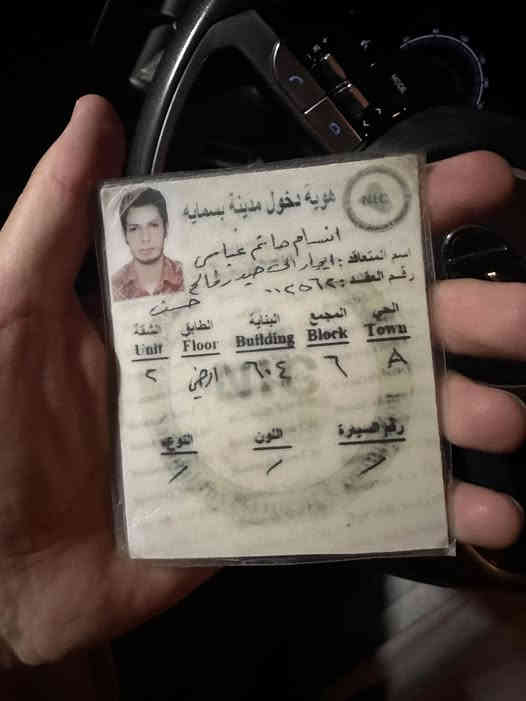 هوية دخول مدينة بسمايه
NIC
ابتسام حاتم عباس
اسم المتعاقد : ايجار الى حيدر فالح حسن
رقم العقد : ٠٠٢٥٦٢
الحي المجمع البناية الطابق الشقة
Town Block Building Floor Unit
A ٦ ٦٠٤ ارضي ٢
رقم السيارة اللون النوع
/ / /